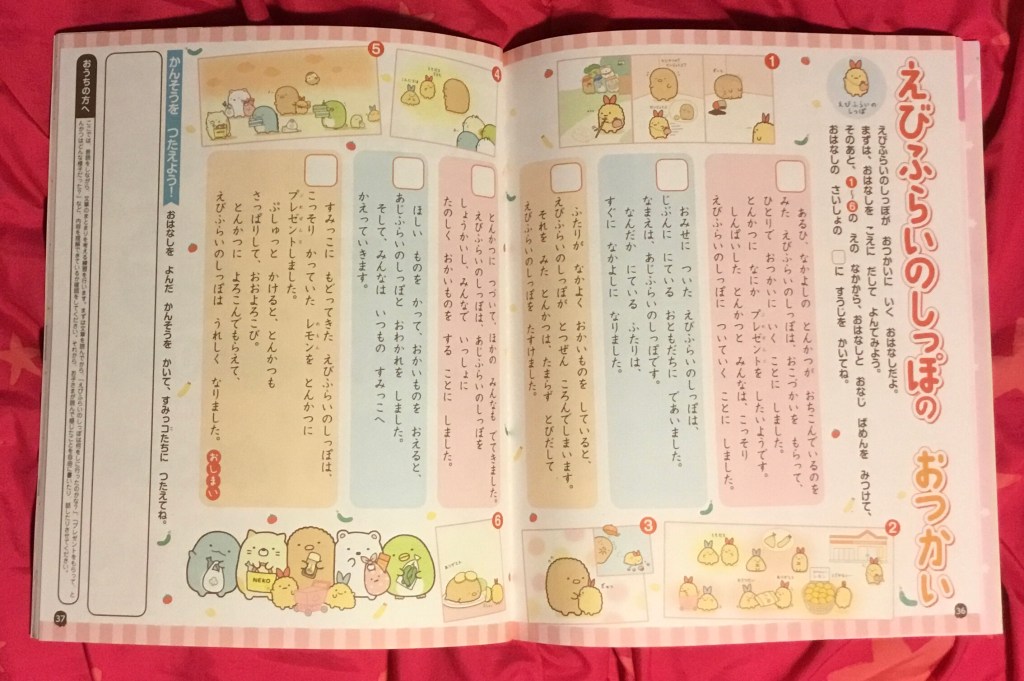 えびふらいのしっぽの おつかい
えびふらいの
しっぽ
えびふらいのしっぽが おつかいに いく おはなしだよ。
まずは、おはなしを こえに だして よんでみよう。
そのあと、1～6の えの なかから、おはなしと おなじ ばめんを みつけて、
おはなしの さいしょの □に すうじを かいてね。
1
2
3
あるひ、なかよしの とんかつが おちこんでいるのを
みた えびふらいのしっぽは、おこづかいを もらって、
ひとりで おつかいに いく ことに しました。
とんかつに なにか プレゼントを したいようです。
しんぱいした とんかつと みんなは、こっそり
えびふらいのしっぽに ついていく ことに しました。
おみせに ついた えびふらいのしっぽは、
じぶんに にている おともだちに であいました。
なまえは、あじふらいのしっぽです。
なんだか にている ふたりは、
すぐに なかよしに なりました。
ふたりが なかよく おかいものを していると、
えびふらいのしっぽが とつぜん ころんでしまいます。
それを みた とんかつは、たまらず とびだして
えびふらいのしっぽを たすけました。
36
4
5
6
とんかつに つづいて、ほかの みんなも でてきました。
えびふらいのしっぽは、あじふらいのしっぽを
しょうかいし、みんなで いっしょに
たのしく おかいものを する ことに しました。
ほしい ものを かって、おかいものを おえると、
あじふらいのしっぽと おわかれを しました。
そして、みんなは いつもの すみっこへ
かえっていきます。
すみっこに もどってきた えびふらいのしっぽは、
こっそり かっていた レモンを とんかつに
プレゼントしました。
ぷしゅっと かけると、とんかつも
さっぱりして、おおよろこび。
とんかつに よろこんでもらえて、
えびふらいのしっぽは うれしく なりました。
おしまい
NEKO
かんそうを つたえよう！
おはなしを よんだ かんそうを かいて、すみっコたちに つたえてね。
おうちの方へ
37